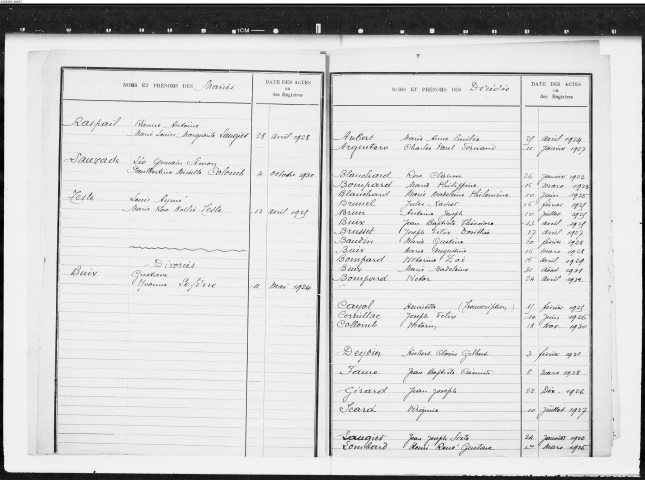 NOMS ET PRÉNOMS DES Mariés
DATE DES ACTES
ou
des Registres
Raspail Etienne Antoine
Marie Louise Marguerite Laugier 28 avril 1928
Sauzade Léo Germain Simon
Colomb 4 octobre 1930
Teste Louis Aymé
Marie Rose Teste 13 avril 1925
Divorcés
Buix Gustave
Yvonne 11 Mai 1924
NOMS ET PRÉNOMS DES Décédés
DATE DES ACTES
ou
des Registres
Aubert Marie Anne Emilie 21 avril 1924
Argentero Charles Paul Fernand 11 janvier 1927
Blanchard Rose 26 janvier 1923
Bompard Marie Philippine 15 mars 1924
Blanchard Marie Madeleine Philomène 10 juin 1925
Brunel Jules Xavier 15 février 1925
Brun Antoine Joseph 10 juillet 1925
Buix Jean Baptiste Théodore 13 avril 1925
Brusset Joseph Félix 27 avril 1927
Baudin Marie 20 février 1928
Buix Marie Augustine 15 mars 1928
Bompard Victorine Zoé 15 avril 1929
Buix Marie Madeleine 31 août 1931
Bompard Victor 24 avril 1932
Cayol Henriette (Transcription) février 1925
Cornillac Joseph Félix 20 juin 1926
Collomb 18 Nov. 1930
Deydier Hubert Clovis Gilbert 3 février 1931
Faure Jean Baptiste 8 mars 1928
Girard Jean Joseph 22 Déc. 1926
Icard Virginie 10 juillet 1927
Laugier Jean Joseph 24 janvier
Lombard Henri René Gustave mars 1925